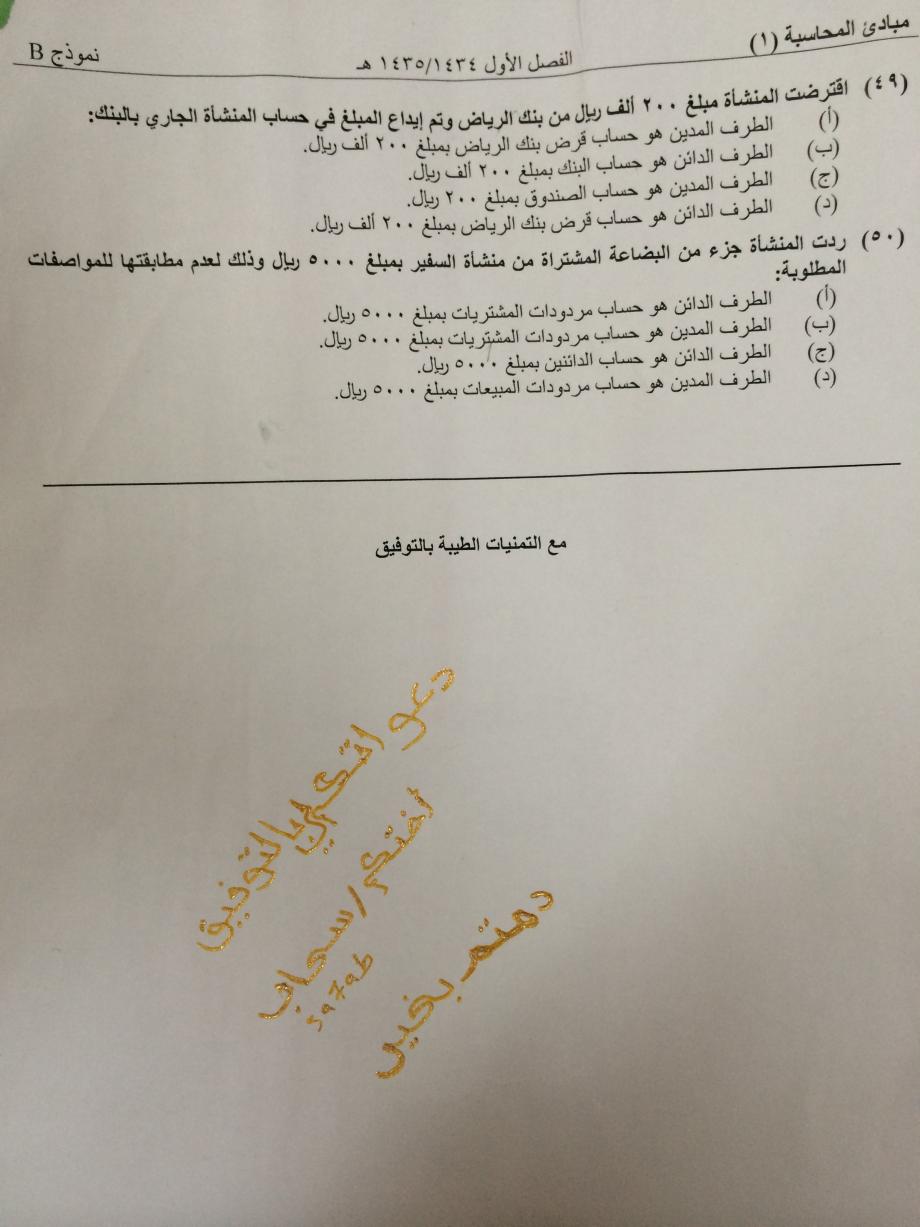 مبادئ المحاسبة (١)
الفصل الأول ١٤٣٥/١٤٣٤ هـ
نموذج B
(٤٩) اقترضت المنشأة مبلغ ٢٠٠ ألف ريال من بنك الرياض وتم إيداع المبلغ في حساب المنشأة الجاري بالبنك:
(أ) الطرف المدين هو حساب قرض بنك الرياض بمبلغ ٢٠٠ ألف ريال.
(ب) الطرف الدائن هو حساب البنك بمبلغ ٢٠٠ ألف ريال.
(ج) الطرف المدين هو حساب الصندوق بمبلغ ٢٠٠ ريال.
(د) الطرف الدائن هو حساب قرض بنك الرياض بمبلغ ٢٠٠ ألف ريال.
(٥٠) ردت المنشأة جزء من البضاعة المشتراة من منشأة السفير بمبلغ ٥٠٠٠ ريال وذلك لعدم مطابقتها للمواصفات
المطلوبة:
(أ) الطرف الدائن هو حساب مردودات المشتريات بمبلغ ٥٠٠٠ ريال.
(ب) الطرف المدين هو حساب مردودات المشتريات بمبلغ ٥٠٠٠ ريال.
(ج) الطرف الدائن هو حساب الدائنين بمبلغ ٥٠٠٠ ريال.
(د) الطرف المدين هو حساب مردودات المبيعات بمبلغ ٥٠٠٠ ريال.
مع التمنيات الطيبة بالتوفيق
دعواتكم لي بالتوفيق
اختكم/سحاب
دمتم بخير